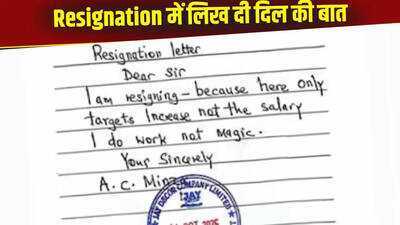 Resignation में लिख दी दिल की बात
Resignation letter
Dear Sir
I am resigning - because here only
targets Increase not the salary
I do work not magic.
Your Sincerely
A. C. Minz
JAY DECOR COMPANY LIMITED
JAY
OCT 2025